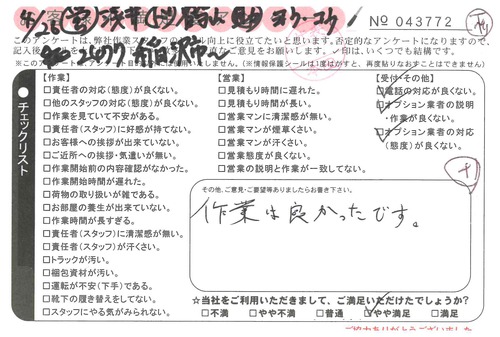 No 043772
このアンケートは、弊社作業スタッフのスキル向上に役立てたいと思います。否定的なアンケートになりますので、
※情報保護シールは1度はがすと、再度貼りなおすことはできません
チェックリスト
【作業】
□責任者の対応(態度)が良くない。
□他のスタッフの対応(態度)が良くない。
□作業を見ていて不安がある。
□責任者(スタッフ)に好感が持てない。
□お客様への挨拶が出来ていない。
□ご近所への挨拶・気遣いが無い。
□作業開始前の内容確認がなかった。
□作業開始時間が遅れた。
□荷物の取り扱いが雑である。
□お部屋の養生が出来ていない。
□作業時間が長すぎる。
□責任者(スタッフ)に清潔感が無い。
□責任者(スタッフ)が汗くさい。
□トラックが汚い。
□梱包資材が汚い。
□運転が不安(下手)である。
□靴下の履き替えをしてない。
□スタッフにやる気がみられない。
【営業】
□見積もり時間に遅れた。
□見積もり時間が長い。
□営業マンに清潔感が無い。
□営業マンが煙草くさい。
□営業マンが汗くさい。
□営業態度が良くない。
□営業の説明と作業が一致してない。
【受付・その他】
□電話の対応が良くない。
□オプション業者の説明
・作業が良くない。
□オプション業者の対応
(態度)が良くない。
その他、ご意見・ご要望等ありましたらお書き下さい。
作業は良かったです。
☆当社をご利用いただきまして、ご満足いただけたでしょうか?
□不満 □やや不満 □普通 □やや満足 □満足
ご協力ありがとうございました